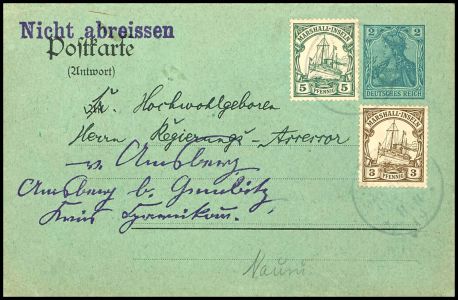 Nicht abreissen
Postkarte
(Antwort)
MARSHALL-INSELN
5 PFENNIG 5
2 2
DEUTSCHES REICH
MARSHALL-INSELN
3 PFENNIG 3
Sr. Hochwohlgeboren
Herrn Regierungs-Assessor
v. Arnsberg
Arnsberg b.
Kreis
Nauru